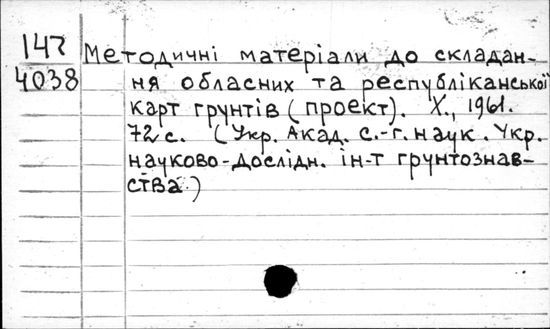 147
4038
Методичні матеріали до складан-
ня обласних та республіканської
карт грунтів (проект). Х., 1961.
72 с. (Укр. Акад. с.-г. наук. Укр.
науково-дослідн. ін-т грунтознав-
ства.)